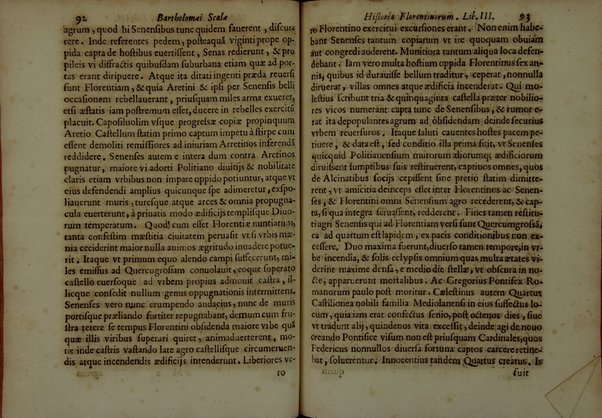 92 Bartholomæi Scalæ
agrum, quod hi Senensibus tunc quidem fauerent, discur-
rere. Inde referentes pedem, posteaquā viginti prope op
pida capta de hostibus fuissent, Senas redierunt, & pro
pileis vi distractis quibusdam suburbana etiam quæ ad por-
tas erant diripuere. Atque ita ditati ingenti præda reuersi
sunt Florentiam, & quia Aretini & ipsi per Senensis belli
occasionem rebellauerant, priusquam miles arma exueret,
etsi æstatis iam postremum esset, ducere in rebelles exercitū
placuit. Capolisuolim vsque progressæ copiæ propinquum
Aretio Castellum statim primo captum impetu à stirpe cum
essent demoliti remississores ad iniuriam Arretinos inferendi
reddidere. Senenses autem e intera dum contra Aretinos
pugnatur, maiore vi adorti Politiano diuitijs & nobilitate
claris etiam vrbibus non impare oppido potiuntur, atque vt
eius defendendi amplius quicunque spe adimeretur, expo-
liauerunt muris, turesque atque arces & omnia propugna-
cula euerterunt, à priuatis modo ædificijs templisque Diuo-
rum temperatum. Quod cum esset Florentiæ nuntiatum,
tanta confestim mæstitia ciuitatem peruasit vt si vrbis mæ-
nia ceciderint maior nulla animos ægritudo inuadere potue-
rit. Itaque vt primum equo alendo campi suffecerunt, mi-
les emissus ad Quercugrossam conuolauit, eoque superato
castello cuersoque ad vrbem propius admouit castra, il-
licque confedit nullum genus oppugnationis intermittens.
Senenses vero nunc erumpendo audacius, nunc de muris
portisque præliando fortiter repugnabant, demum cum fru-
stra terere se tempus Florentini obsidenda maiore vrbe quā
quæ illis viribus superari quiret, animaduerterent, mo-
tis inde castris vastando late agro castellisque circumeun-
dis atque incendendis ædificijs intenderunt. Liberiores ve-
10
Historia Florentinorum. Lib. III. 93
ro Florentino exercitui excursiones erant. Non enim habe-
bant Senenses tantum copiarum vt ire quoquam obuiam
aut congredi auderent. Munitiora tantum aliqua loca defen-
debant. Iam vero multa hostium oppida Florentinus sex an-
nis, quibus id durauisse bellum traditur, ceperat, nonnulla
diruerat, villas omnes atque ædificia incenderat. Qui mo-
lestius scribunt tria & quinquaginta castella præter nobilio-
res vicos numerant capta tunc de Senensibus, & rumor e-
rat ita depopulantes agrum ad obsidendam deinde securius
vrbem reuersuros. Itaque saluti cauentes hostes pacem pe-
tiuere, & data est, sed conditio illa prima fuit, vt Senenses
quicquid Politianensium murorum aliorumq; ædificiorum
diruissent sumptibus suis restituerent, captiuos omnes, quos
de Alcinatibus socijs cepissent sine pretio statim dimitte-
rent, vt amicitia deinceps esset inter Florentinos ac Senen-
ses, & Florentini omni Senensium agro recederent, & ca-
pta, si qua integra seruassent, redderent. Fines tamen restitu-
ti agri Senensis qui ad Florentiam versi sunt Quercumgrossā,
et ad quartum est lapidem, ex pacis conditionibus non ex-
cessere. Duo maxima fuerunt, diuerso tamen tempore, in vr-
be incendia, & solis eclypsis omnium quas multæ ætates vi-
derint maxime densa, e medio die stellæ, vt obscura in no-
cte, apparuerunt mortalibus. Ac Gregorius Pontifex Ro-
manorum paulo post moritur. Cælestinus autem Quartus
Castilionea nobili familia Mediolanensis in eius suffectus lo-
cum, quia iam erat confectus senio, post octonos dies, siue
vt tradunt alij, quindenos vita excessit, deinde agi de nouo
creando Pontifice visum non est priusquam Cardinales, quos
Federicus nonnullos diuersa fortuna captos carcere retine-
bat, solueretur. Innocentius tandem Quartus creatus. Is
fuit